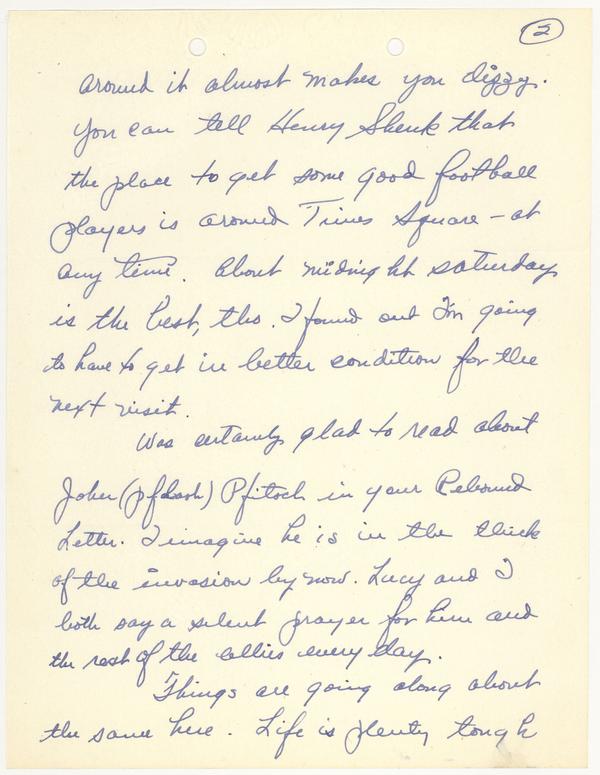 2
around it almost makes you dizzy.
You can tell Henry Shenk that
the place to get some good football
players is around Times Square - at
any time. About midnight saturday
is the best, tho. I found out I'm going
to have to get in better condition for the
next visit.
Was certainly glad to read about
John (pfdash) Pfitsch in your Rebound
Letter. I imagine he is in the thick
of the invasion by now. Lucy and I
both say a silent prayer for him and
the rest of the allies every day.
Things are going along about
the same here. Life is plenty tough